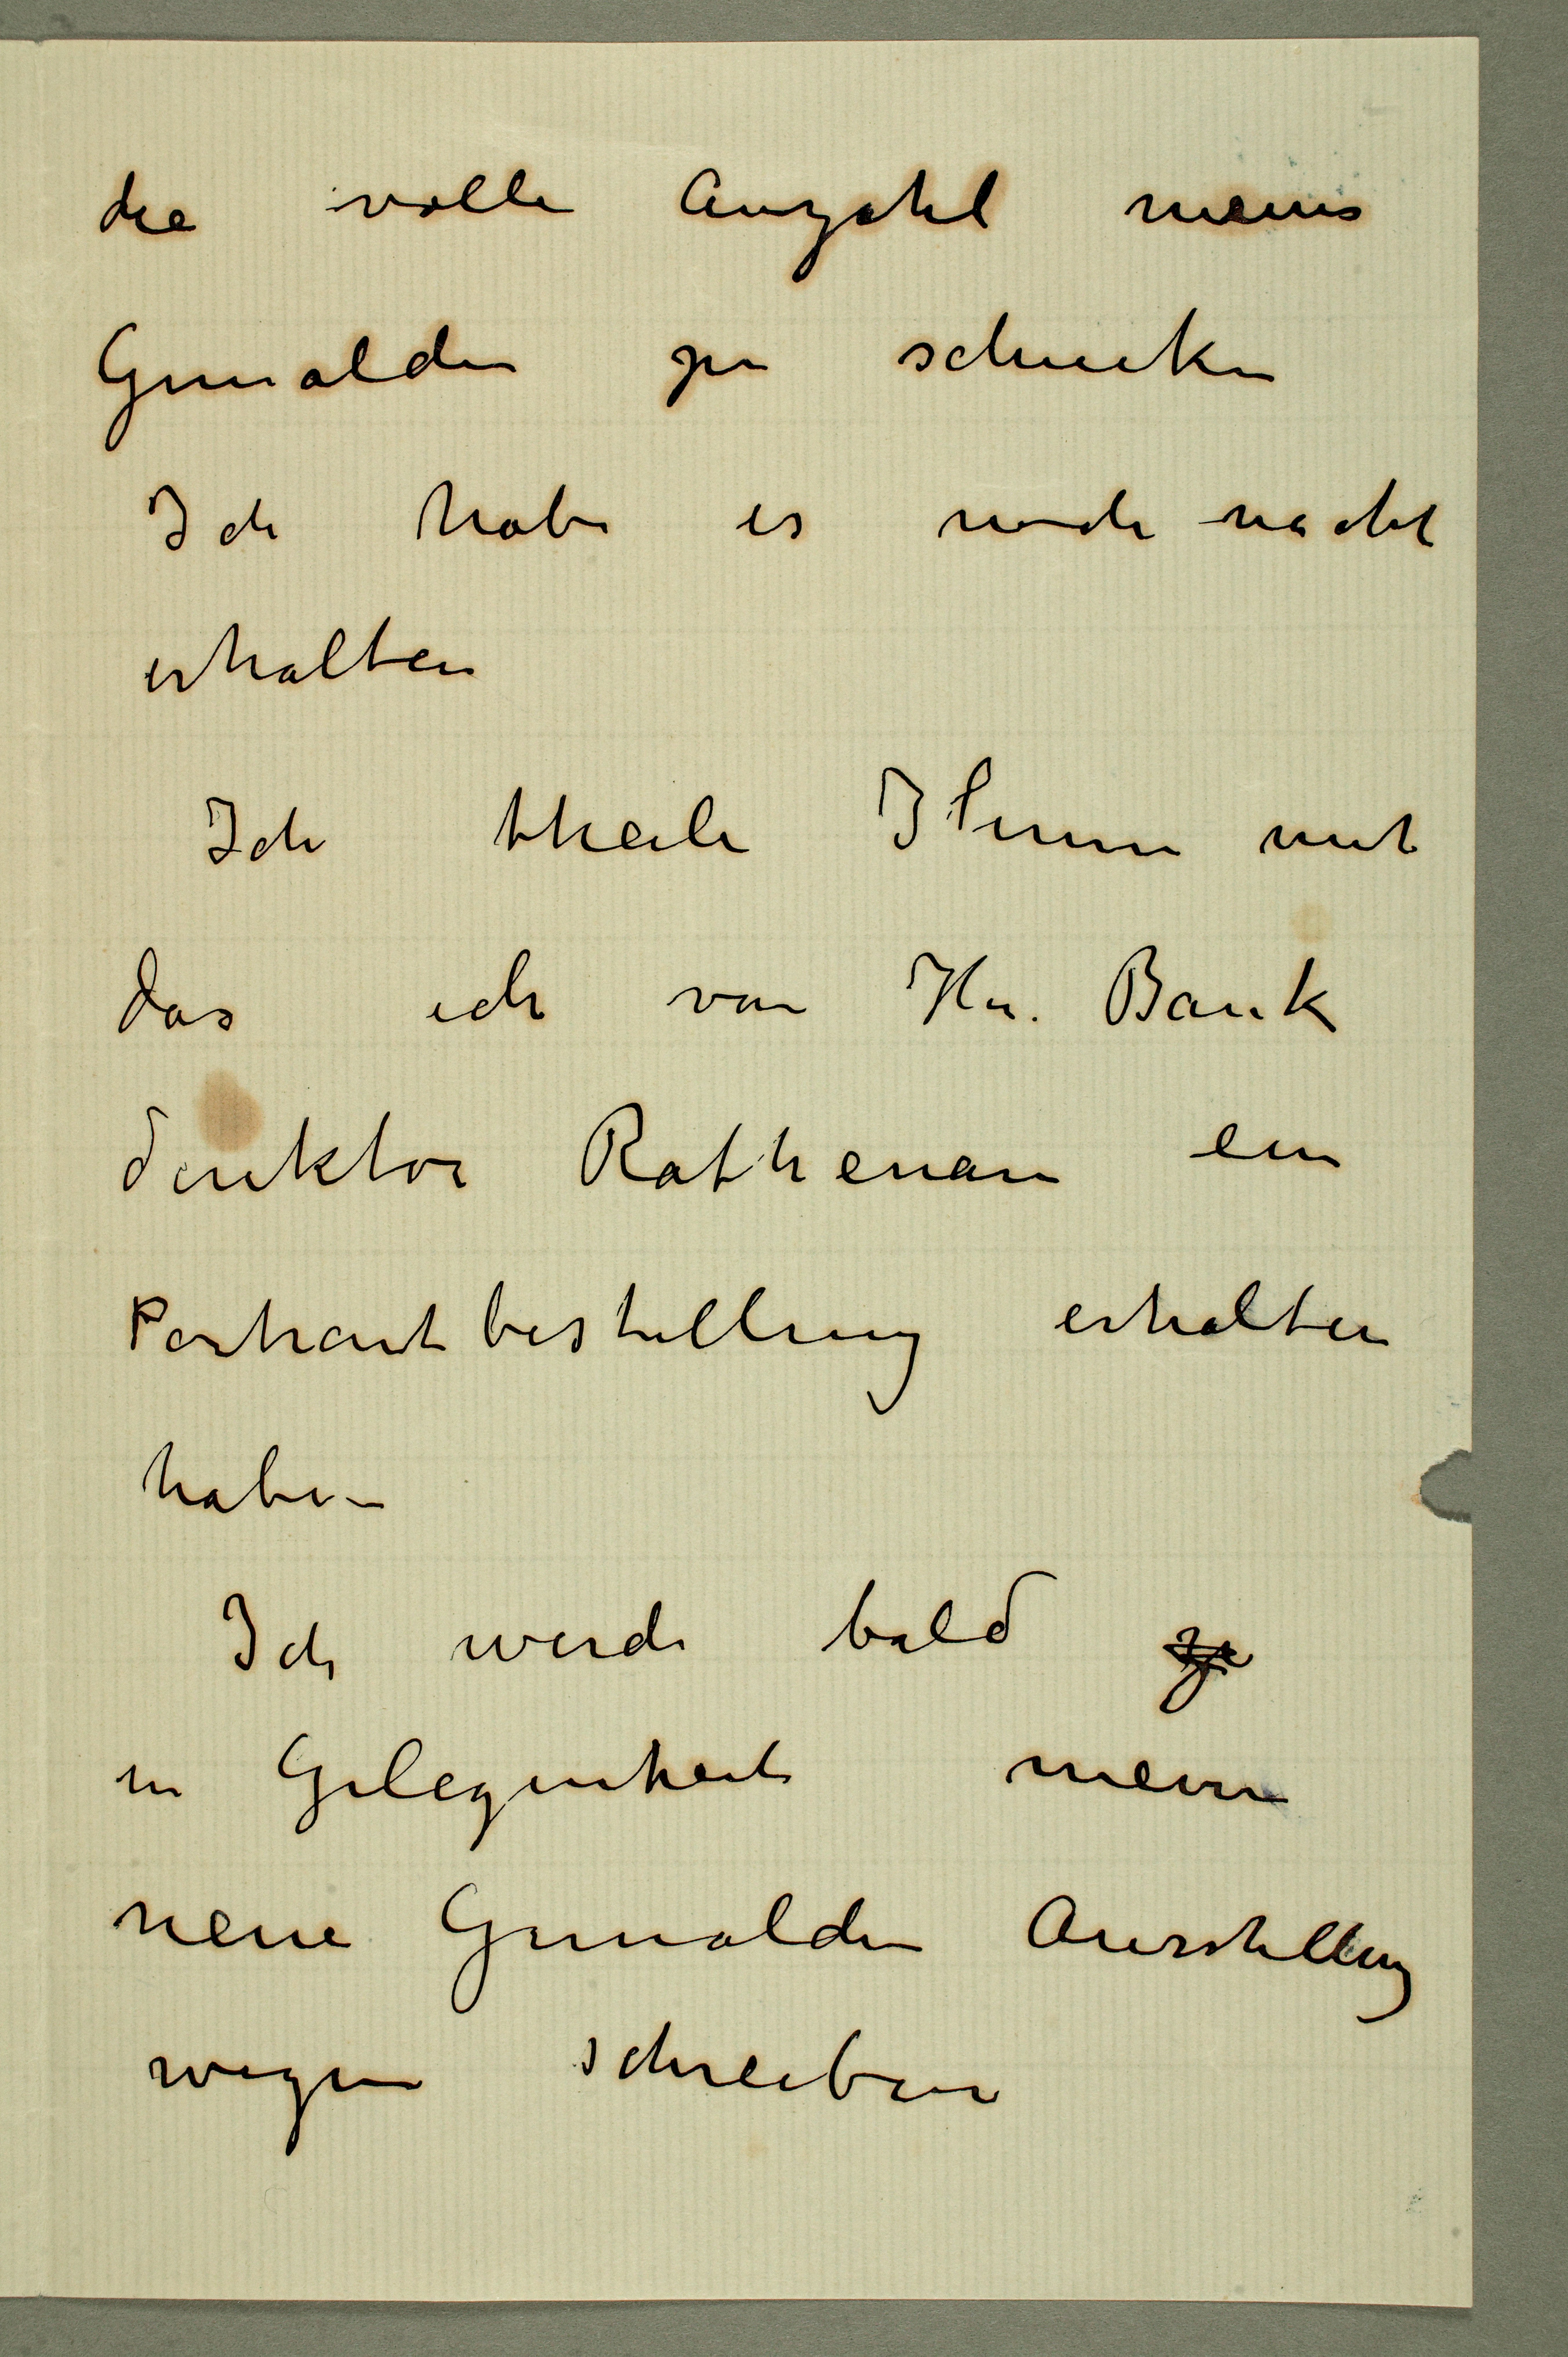 die volle Anzahl meines
Gemälden zu schicken
Ich habe es noch nicht
erhalten
Ich theile Ihnen mit
das ich von Hn. Bank
direktor Rathenau ein
Portraitbestellung erhalten
haben
Ich werde bald
in Gelegenheit meine
neue Gemälden Ausstellung
wegen schreiben